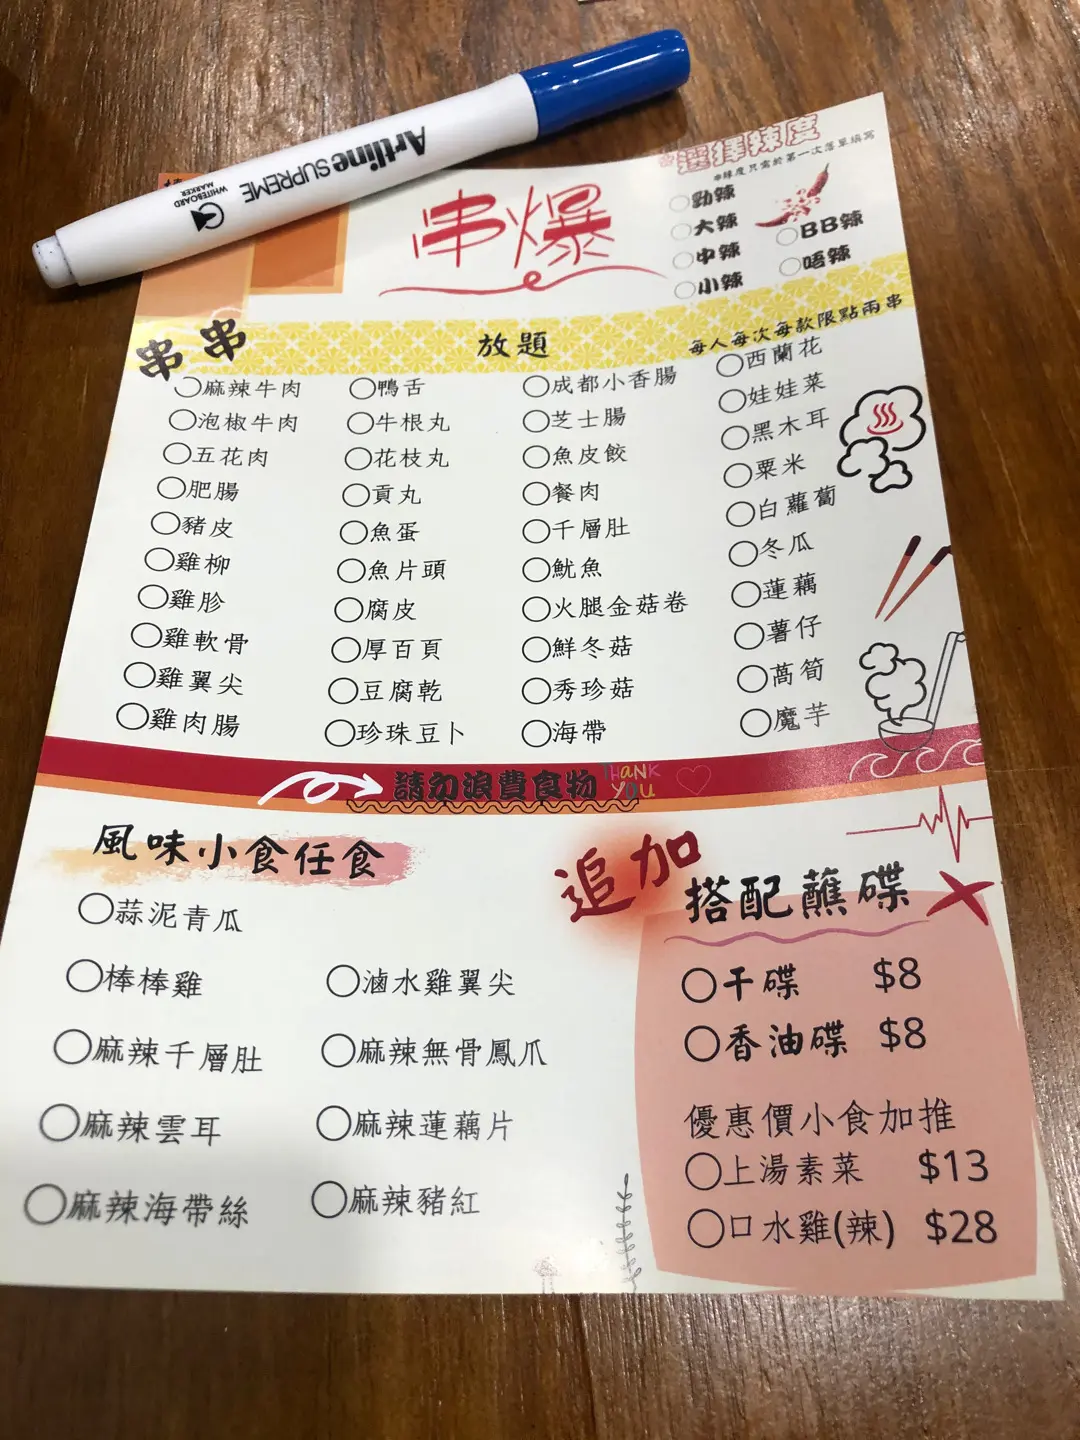 Artline SUPREME
WHITEBOARD
MARKER
串爆
選擇辣度
*辣度只需於第一次落單填寫
勁辣
大辣
中辣
小辣
BB辣
唔辣
串串
放題
每人每次每款限點兩串
麻辣牛肉
泡椒牛肉
五花肉
肥腸
豬皮
雞柳
雞胗
雞軟骨
雞翼尖
雞肉腸
鴨舌
牛根丸
花枝丸
貢丸
魚蛋
魚片頭
腐皮
厚百頁
豆腐乾
珍珠豆卜
成都小香腸
芝士腸
魚皮餃
餐肉
千層肚
魷魚
火腿金菇卷
鮮冬菇
秀珍菇
海帶
西蘭花
娃娃菜
黑木耳
粟米
白蘿蔔
冬瓜
蓮藕
薯仔
萵筍
魔芋
請勿浪費食物
THANK
YOU
風味小食任食
蒜泥青瓜
棒棒雞
麻辣千層肚
麻辣雲耳
麻辣海帶絲
滷水雞翼尖
麻辣無骨鳳爪
麻辣蓮藕片
麻辣豬紅
追加
搭配蘸碟
干碟 $8
香油碟 $8
優惠價小食加推
上湯素菜 $13
口水雞(辣) $28